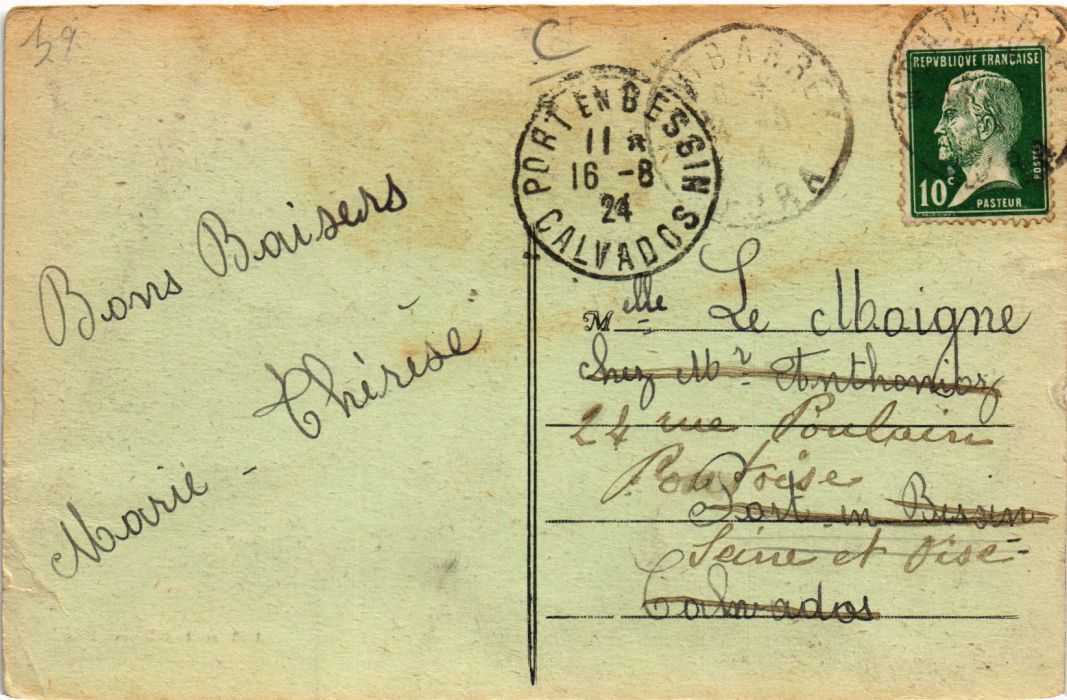 C
MONTBARREY
JURA
PORT EN BESSIN
11
16 -8
24
CALVADOS
REPVBLIQUE FRANÇAISE
POSTES
10c
PASTEUR
Bons Baisers
Marie - Thérèse
Melle Le Moigne
chez Mr Anthonioz
24 rue Poulain
Pontoise
Port-en Bessin
Seine et Oise
Calvados